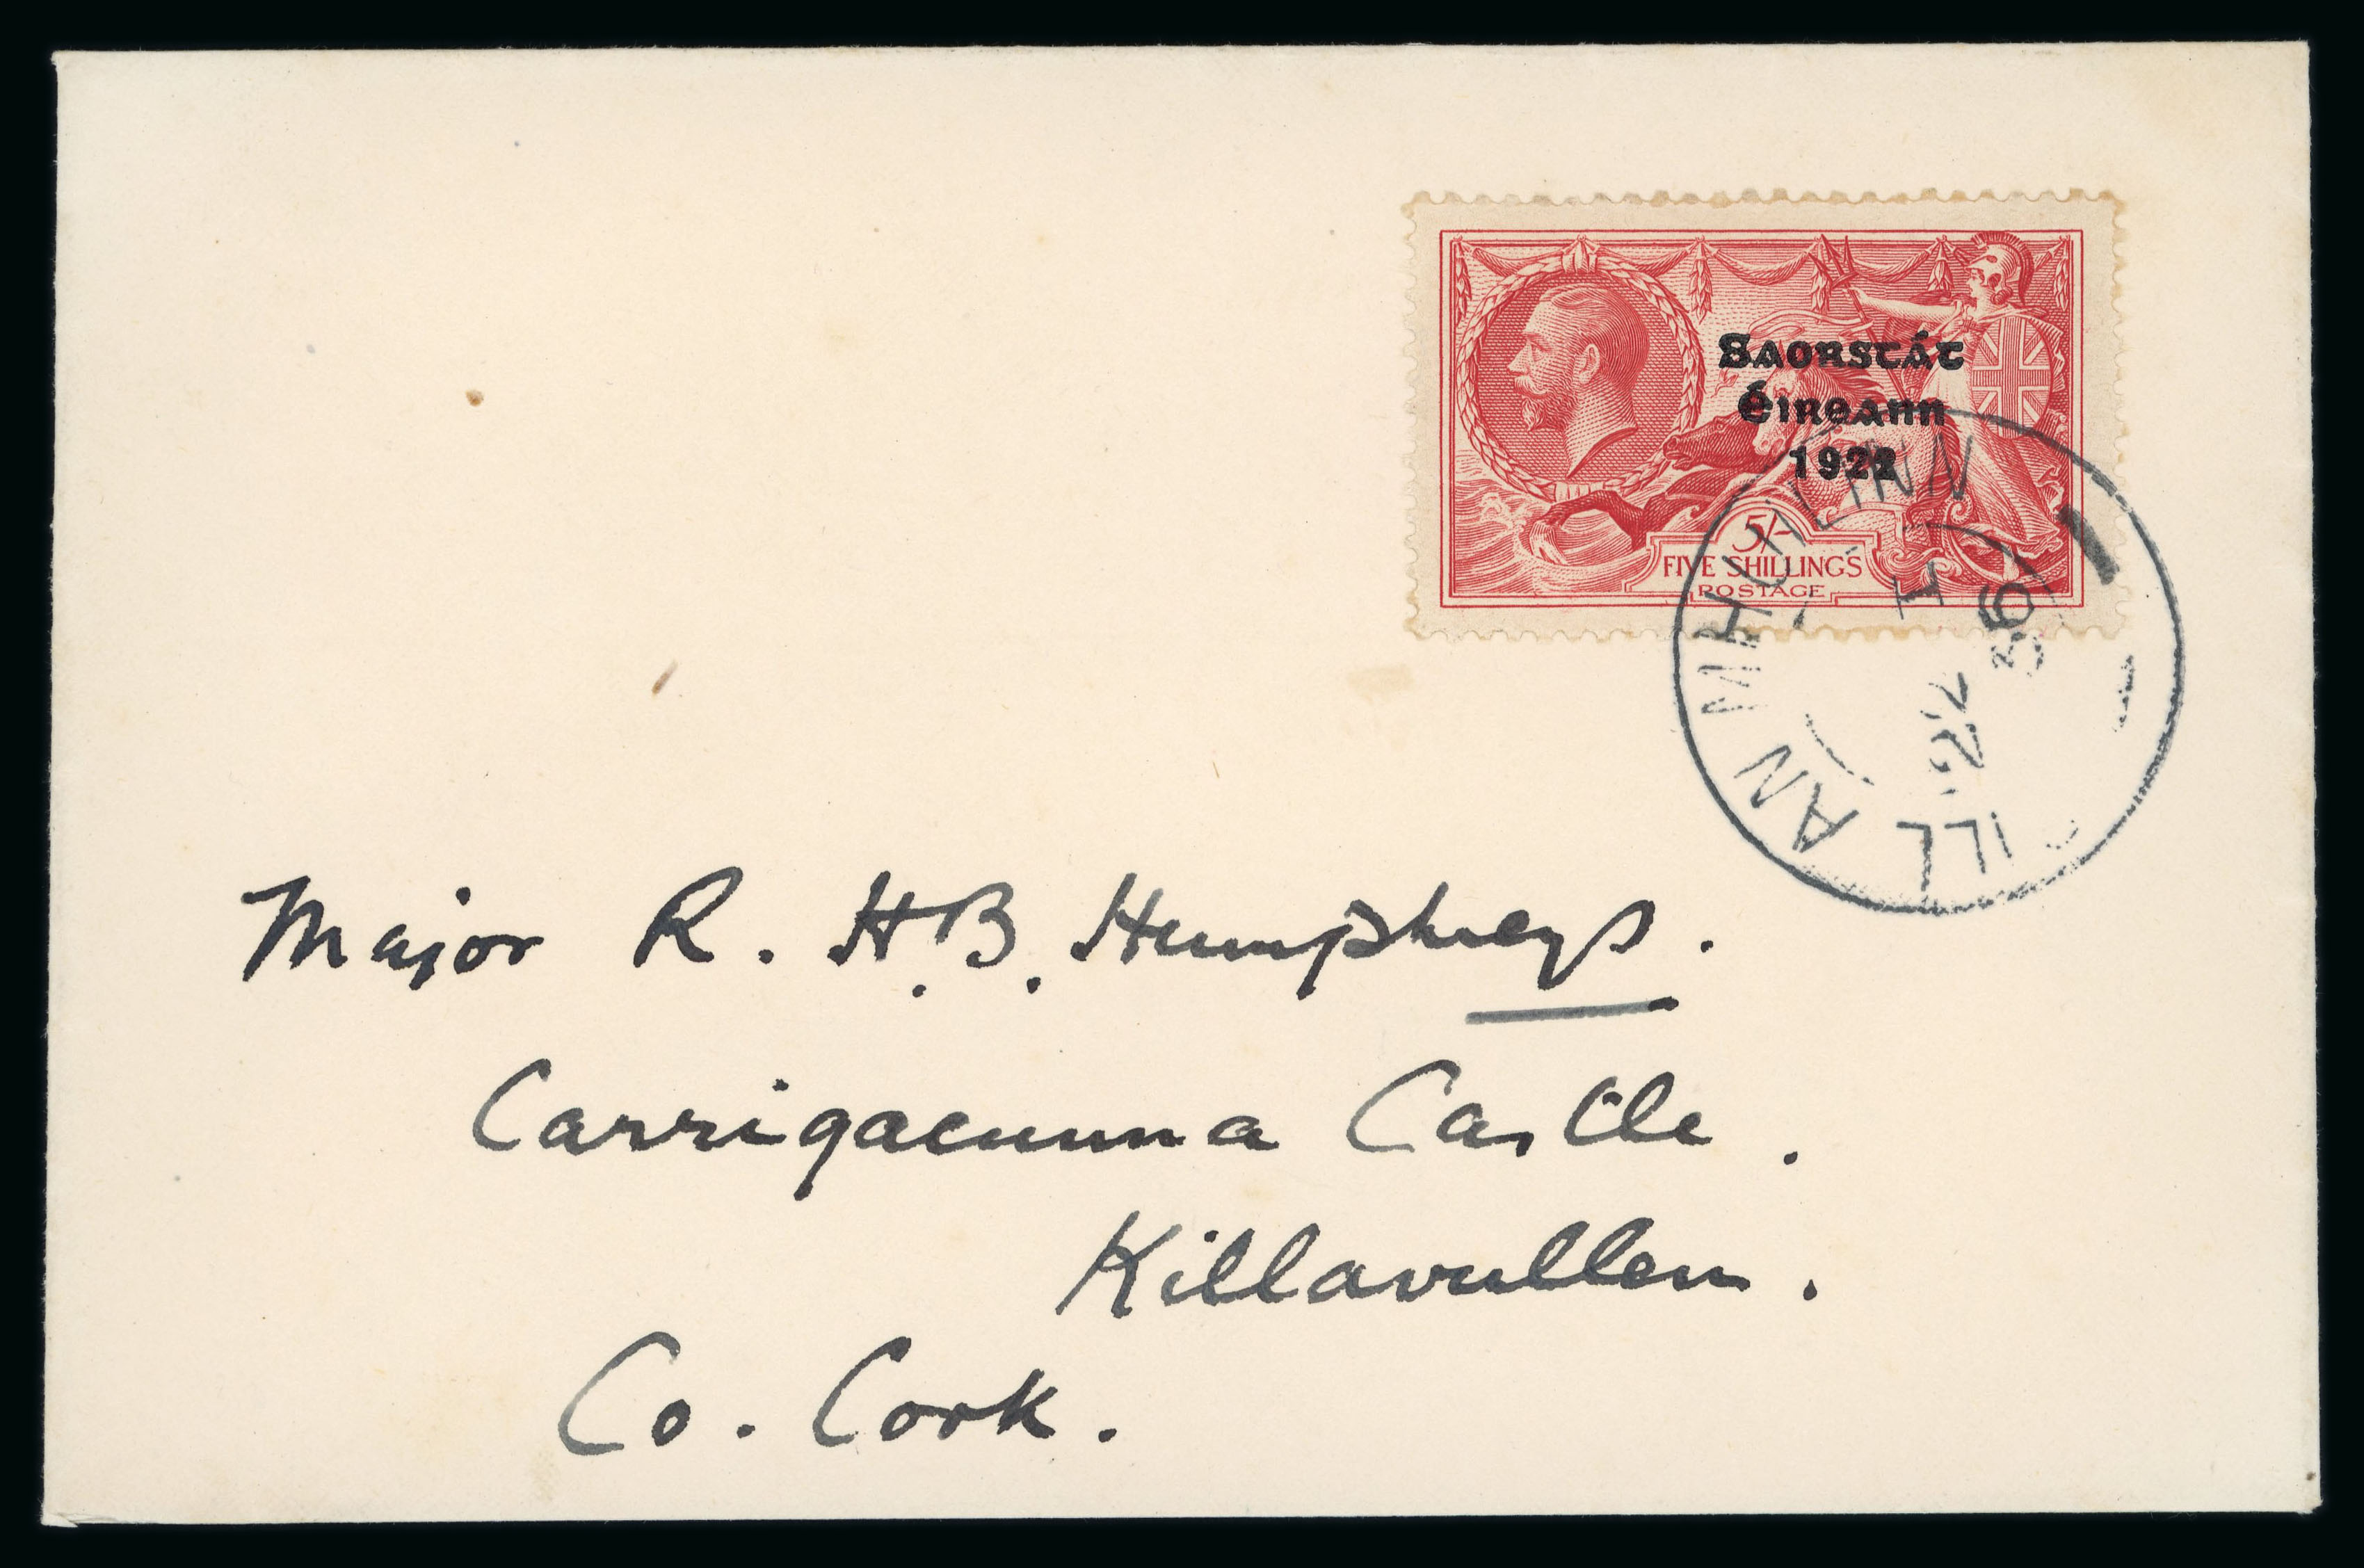 Saorstát
Éireann
1922
5/-
FIVE SHILLINGS
POSTAGE
ILL AN MHUILINN
Major R. H.B. Humphreys.
Carrigacunna Castle.
Killavullen.
Co. Cork.